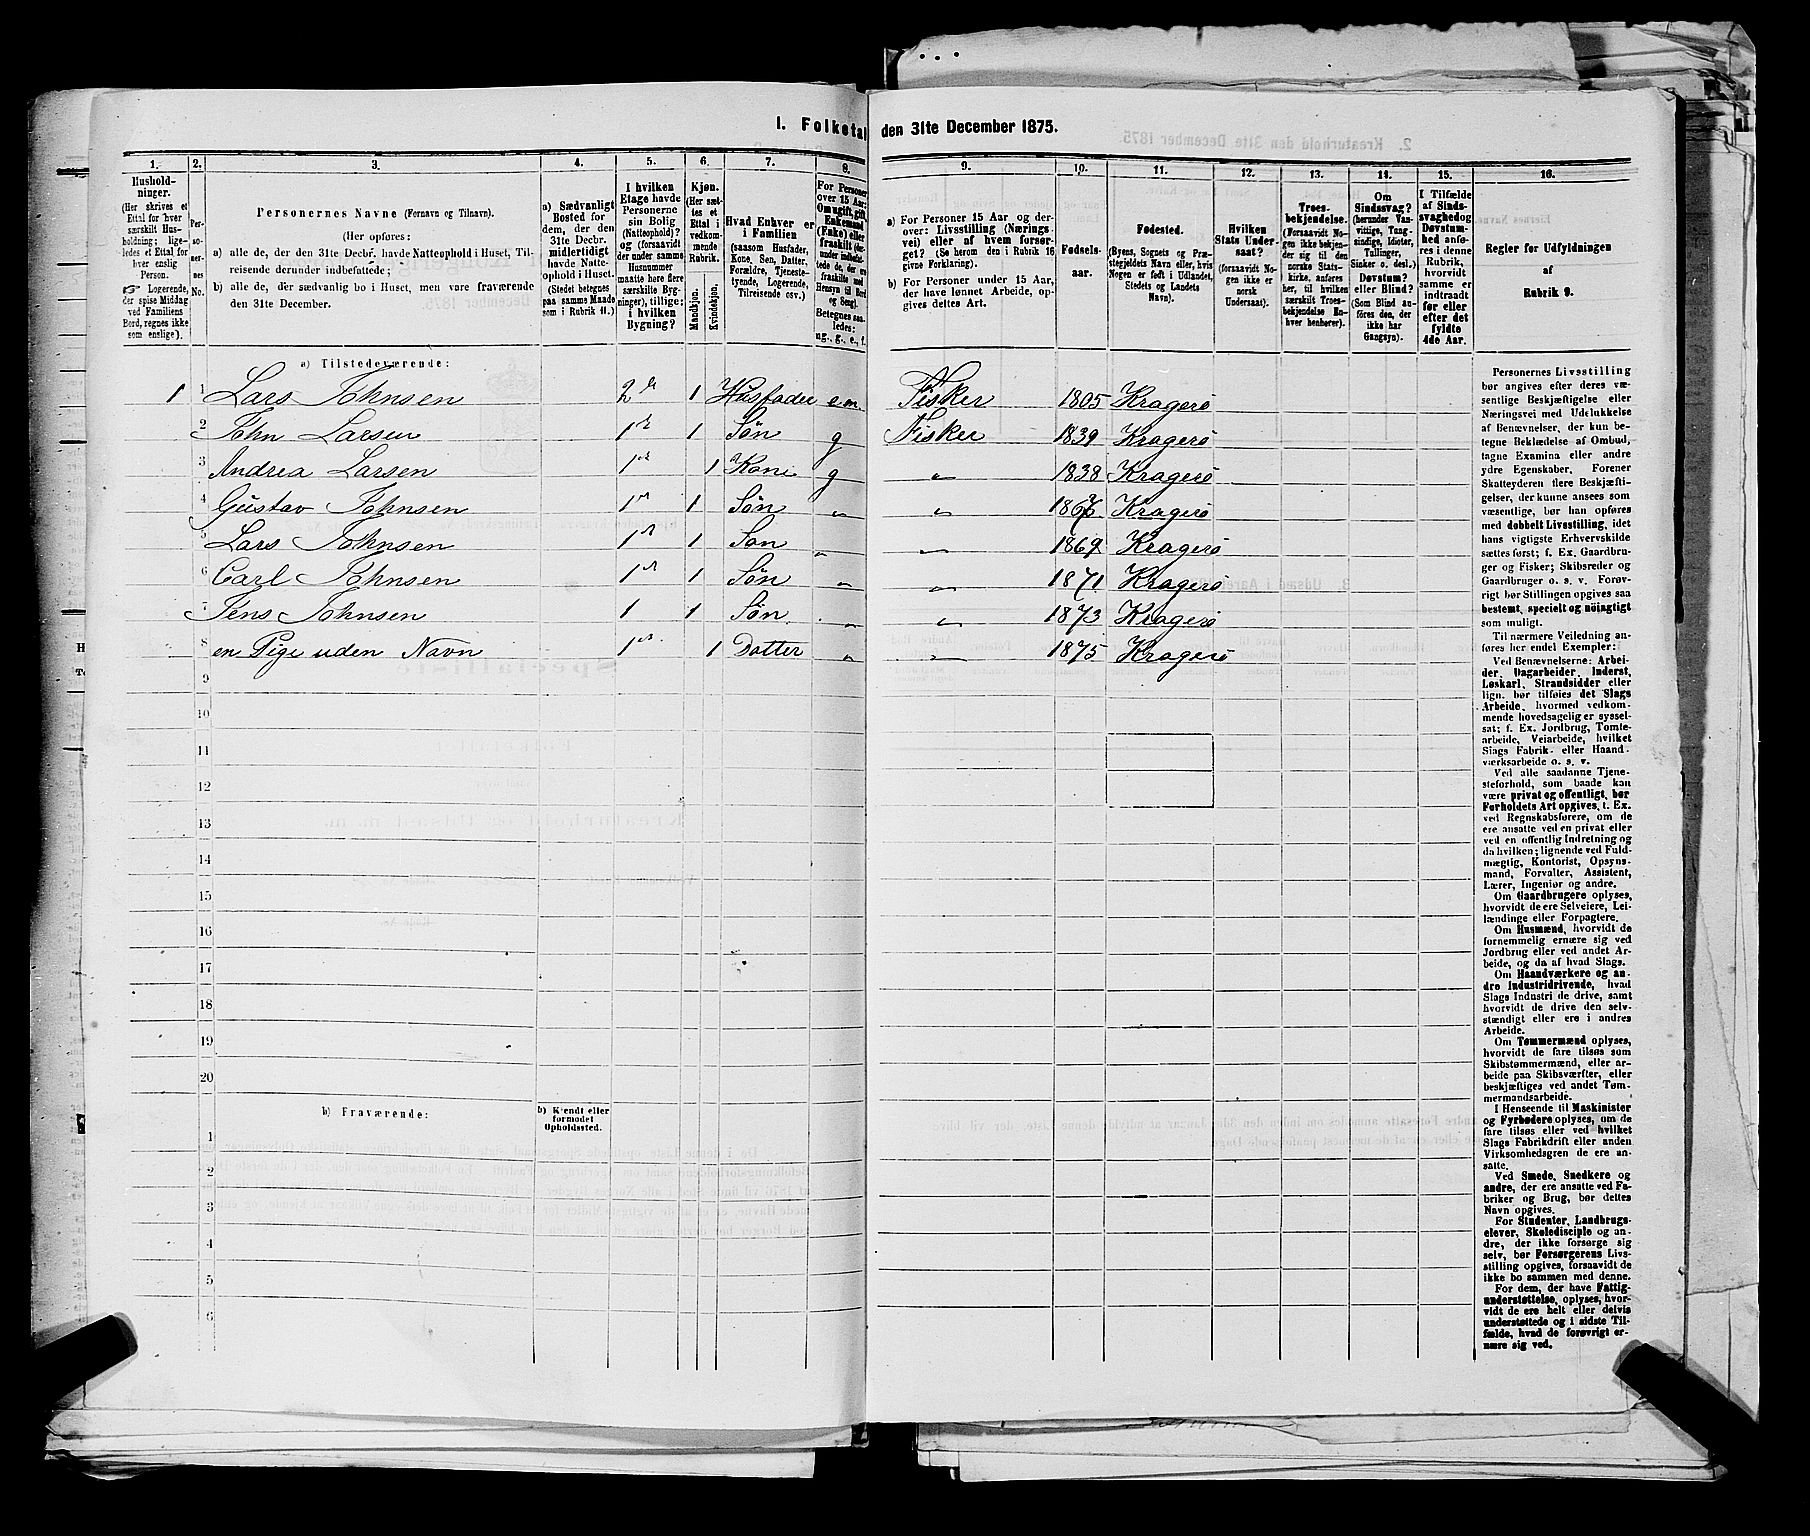 1. Folketal den 31te December 1875.
1. 2. 3. 4. 5. 6. 7. 8. 9. 10. 11. 12. 13. 14. 15. 16.
Hushold-
ninger.
(Her skrives et
Ettal for hver
særskilt Hus-
holdning; lige-
ledes et Ettal for
hver enslig
Person.
☞ Logerende,
der spise Middag
ved Familiens
Bord, regnes ikke
som enslige).
Per-
so-
ner-
nes
No.
Personernes Navne (Fornavn og Tilnavn).
(Her opføres:
a) alle de, der den 31te Decbr. havde Natteophold i Huset, Til-
reisende derunder indbefattede;
b) alle de, der sædvanlig bo i Huset, men vare fraværende
den 31te December.
a) Sædvanligt
Bosted for
dem, der den
31te Decbr.
midlertidigt
havde Natte-
ophold i Huset.
(Stedet betegnes
paa samme Maade
som i Rubrik 11.)
I hvilken
Etage havde
Personerne
sin Bolig
(Natteophold)?
og (forsaavidt
der under samme
Husnummer
maatte høre flere
særskilte Byg-
ninger), tillige:
i hvilken
Bygning?
Kjøn.
(Her sæt-
tes et
Ettal i
vedkom-
mende
Rubrik.
Mandkjøn.
Kvindekjøn.
Hvad Enhver er
i Familien
(saasom Husfader,
Kone, Søn, Datter,
Forældre, Tjeneste-
tyende, Logerende,
Tilreisende osv.)
For Personer
over 15 Aar:
Om ugift, gift,
Enkemand
(Enke) eller
fraskilt (der-
under indbefat-
tede de, der ere
fraskilte med
Hensyn til Bord
og Seng).
Betegnes saa-
ledes:
ug., g., e., f.
a) For Personer 15 Aar og der-
over: Livsstilling (Nærings-
vei) eller af hvem forsør-
get? (Se herom den i Rubrik 16
givne Forklaring).
b) For Personer under 15 Aar,
der have lønnet Arbeide, op-
gives dettes Art.
Fødsels-
aar.
Fødested.
(Byens, Sognets og Præ-
stegjeldets Navn eller, hvis
Nogen er født i Udlandet,
Stedets og Landets
Navn).
Hvilken
Stats Under-
saat?
(forsaavidt No-
gen ikke er
norsk
Undersaat).
Troes-
bekjendelse.
(Forsaavidt No-
gen ikke bekjen-
der sig til den
norske Stats-
kirke, anføres
her, til hvilken
særskilt Troes-
bekjendelse En-
hver henhører).
Om
Sindssvag?
(herunder Van-
vittige, Tung-
sindige, Idioter,
Tullinger,
Sinker o. desl.)
Døvstum?
eller Blind?
(Som Blind an-
føres den, der
ikke har
Gangsyn).
I Tilfælde
af Sinds-
svaghed og
Døvstum-
hed anfø-
res i denne
Rubrik,
hvorvidt
samme er
indtraadt
før eller
efter det
fyldte
4de Aar.
Regler for Udfyldningen
af
Rubrik 9.
a) Tilstedeværende:
1 1 Lars Johnsen 2 1 Husfader em. Fisker 1805 Kragerø
2 John Larsen 1 1 Søn g Fisker 1839 Kragerø
3 Andrea Larsen 1 1 Kone g " 1838 Kragerø
4 Gustav Johnsen 1 1 Søn " " Kragerø
5 Lars Johnsen 1 1 Søn " " 1869 Kragerø
6 Carl Johnsen 1 1 Søn " " 1871 Kragerø
7 Jens Johnsen 1 1 Søn. " " 1873 Kragerø
8 en Pige uden Navn 1 1 Datter " " 1875 Kragerø
9
10
11
12
13
14
15
16
17
18
19
20
b) Fraværende:
b) Kjendt eller
formodet
Opholdssted.
1
2
3
4
5
6
Personernes Livsstilling
bør angives efter deres væ-
sentlige Beskjæftigelse eller
Næringsvei med Udelukkelse
af Benævnelser, der kun be-
tegne Beklædelse af Ombud,
tagne Examina eller andre
ydre Egenskaber. Forener
Skatteyderen flere Beskjæfti-
gelser, der kunne ansees som
væsentlige, bør han opføres
med dobbelt Livsstilling, idet
hans vigtigste Erhvervskilde
sættes først; f. Ex. Gaardbru-
ger og Fisker; Skibsreder og
Gaardbruger o. s. v. Forøv-
rigt bør Stillingen opgives saa
bestemt, specielt og nöiagtigt
som muligt.
Til nærmere Veiledning an-
føres her endel Exempler:
Ved Benævnelserne: Arbei-
der, Dagarbeider, Inderst,
Løskarl, Strandsidder eller
lign. bør tilføies det Slags
Arbeide, hvormed vedkom-
mende hovedsagelig er syssel-
sat; f. Ex. Jordbrug, Tomte-
arbeide, Veiarbeide, hvilket
Slags Fabrik- eller Haand-
værksarbeide o. s. v.
Ved alle saadanne Tjene-
steforhold, som baade kan
være privat og offentligt, bør
Forholdets Art opgives, t. Ex.
ved Regnskabsførere, om de
ere ansatte ved en privat eller
ved en offentlig Indretning og
da hvilken; lignende ved Fuld-
mægtig, Kontorist, Opsyns-
mand, Forvalter, Assistent,
Lærer, Ingeniør og andre.
Om Gaardbrugere oplyses,
hvorvidt de ere Selveiere, Lei-
lændinge eller Forpagtere.
Om Husmænd, hvorvidt de
fornemmelig ernære sig ved
Jordbrug eller ved andet Ar-
beide, og da af hvad Slags.
Om Haandværkere og an-
dre industridrivende, hvad
Slags Industri de drive, samt
hvorvidt de drive den selv-
stændigt eller ere i andres
Arbeide.
Om Tømmermænd oplyses,
hvorvidt de fare tilsøs som
Skibstømmermænd, eller ar-
beide paa Skibsværfter, eller
beskjæftiges ved andet Tøm-
mermandsarbeide.
I Henseende til Maskinister
og Fyrbødere oplyses, om de
fare tilsøs eller ved hvilket
Slags Fabrikdrift eller anden
Virksomhedsgren de ere an-
satte.
Ved Smede, Snedkere og
andre, der ere ansatte ved Fa-
briker og Brug, bør dettes
Navn opgives.
For Studenter, Landbrugs-
elever, Skoledisciple og an-
dre, der ikke forsørge sig
selv, bør Forsørgerens Livs-
stilling opgives, forsaavidt de
ikke bo sammen med denne.
For dem, der have Fattig-
understøttelse, oplyses, hvor-
vidt de ere helt eller delvis
understøttede og i sidste Til-
fælde, hvad de forøvrigt er-
nære sig ved.